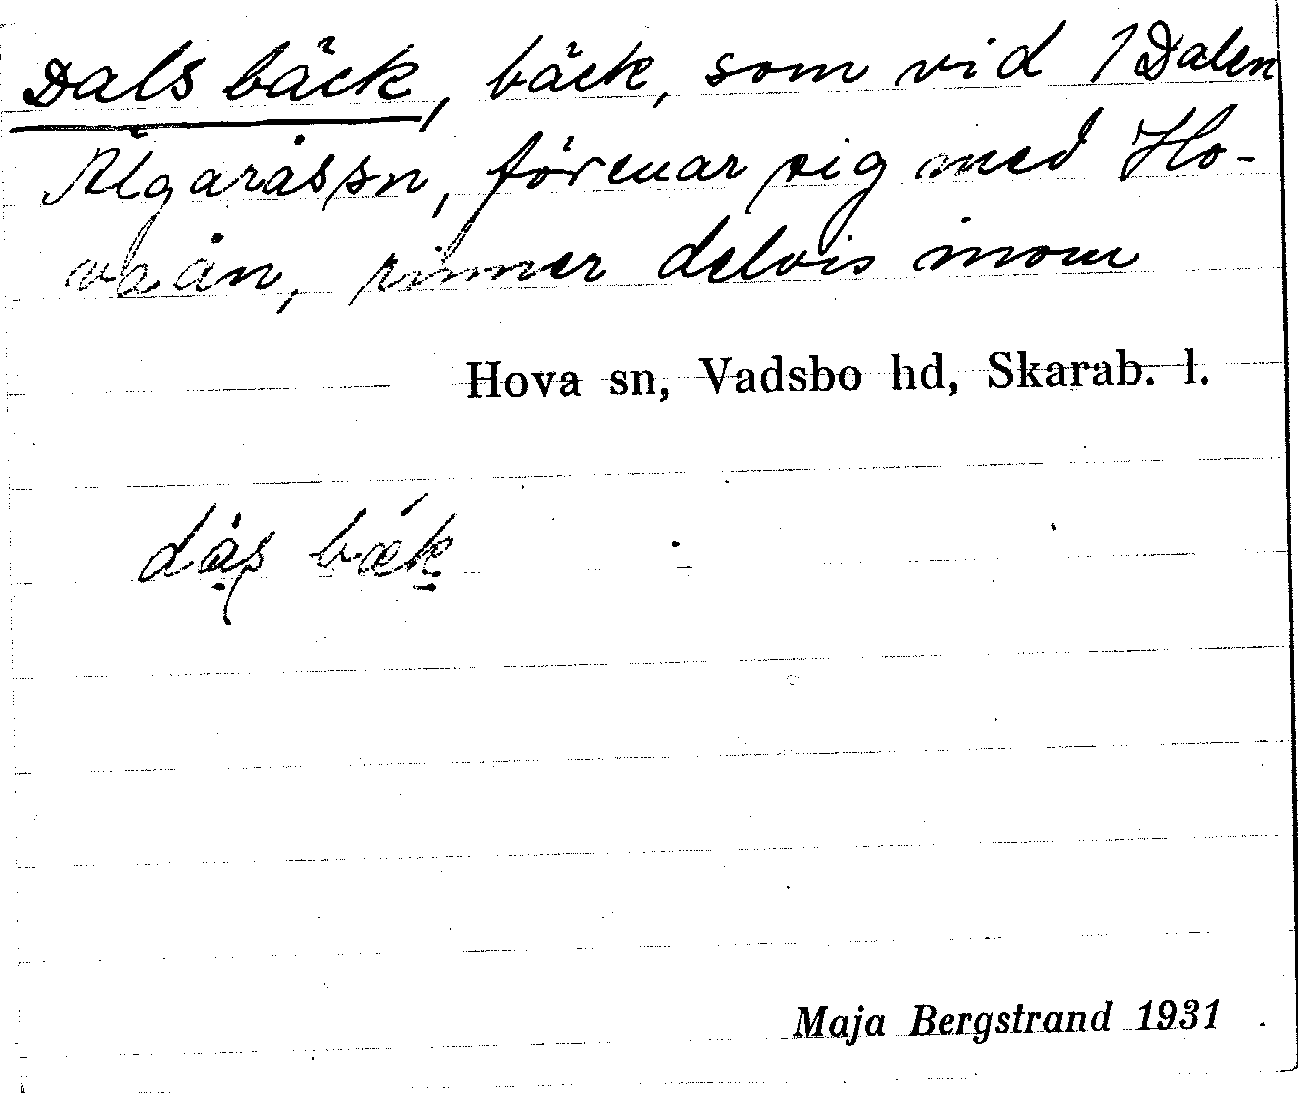 Dalsbäck, bäck, som vid 1 Dalen
Älgarås sn, förenar sig med Ho-
vaån, rinner delvis inom
Hova sn, Vadsbo hd, Skarab. l.
dås bæk
Maja Bergstrand 1931